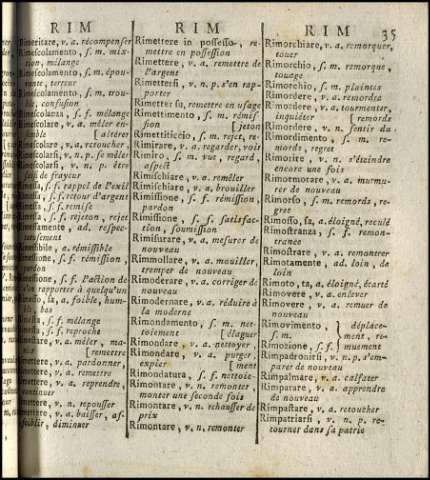 RIM
RIM
RIM
35
Rimeritare, v. a. récompenser
Rimescolamento, s. m. mix-
tion, mélange
Rimescolamento, s. m. épou-
vante, terreur
Rimescolamento, s. m. trou-
ble, confusion
Rimescolanza, s. f. mélange
Rimescolare, v. a. mêler en-
semble [altérer
Rimescolare, v. a. retoucher,
Rimescolarsi, v. n. p. se mêler
Rimescolarsi, v. n. p. être
saisi de frayeur
Rimessa, s. f. rappel de l'exil
Rimessa, s. f. retour d'argent
Rimessa, s. f. remise
Rimessa, s. f. rejeton, rejet
Rimessamente, ad. respec-
tueusement
Rimessibile, a. rémissible
Rimessione, s. f. rémission,
pardon
Rimessione, s. f. l'action de
se rapporter à quelqu'un
Rimesso, sa, a. foible, hum-
ble, bas
s. f. mélange
s. f. reproche
v. a. mêler, ma-
[remettre
Rimettere, v. a. pardonner,
Rimettere, v. a. remettre
Rimettere, v. a. reprendre,
continuer
Rimettere, v. n. repousser
Rimettere, v. a. baisser, af-
foiblir, diminuer
Rimettere in possesso, re-
mettre en possession
Rimettere, v. a. remettre de
l'argent
Rimettersi, v. n. p. s'en rap-
porter
Rimetter su, remettre en usage
Rimettimento, s. m. rémis-
sion [jeton
Rimettiticcio, s. m. rejet, re-
Rimirare, v. a. regarder, voir
Rimiro, s. m. vue, regard,
aspect
Rimischiare, v. a. remêler
Rimischiare, v. a. brouiller
Rimissione, s. f. rémission,
pardon
Rimissione, s. f. satisfac-
tion, soumission
Rimisurare, v. a. mesurer de
nouveau
Rimmollare, v. a. mouiller,
tremper de nouveau
Rimoderare, v. a. corriger de
nouveau
Rimodernare, v. a. réduire à
la moderne
Rimondamento, s. m. net-
toiement [élaguer
Rimondare, v. a. nettoyer,
Rimondare, v. a. purger,
expier [ment
Rimondatura, s. f. nettoie-
Rimontare, v. n. remonter,
monter une seconde fois
Rimontare, v. n. rehausser de
prix
Rimontare, v. n. remonter
Rimorchiare, v. a. remorquer,
touer
Rimorchio, s. m. remorque,
touage
Rimorchio, s. m. plaintes
Rimordere, v. a. remordre
Rimordere, v. a. tourmenter,
inquiéter [remords
Rimordere, v. n. sentir du
Rimordimento, s. m. re-
mords, regret
Rimorire, v. n. s'éteindre
encore une fois
Rimormorare, v. a. murmu-
rer de nouveau
Rimorso, s. m. remords, re-
gret
Rimosso, sa, a. éloigné, reculé
Rimostranza, s. f. remon-
trance
Rimostrare, v. a. remontrer
Rimotamente, ad. loin, de
loin
Rimoto, ta, a. éloigné, écarté
Rimovere, v. a. enlever
Rimovere, v. a. remuer de
nouveau
Rimovimento, } déplace-
s. m. } ment, re-
Rimozione, s. f. } muement
Rimpadronirsi, v. n. p. s'em-
parer de nouveau
Rimpalmare, v. a. calfater
Rimparare, v. a. apprendre
de nouveau
Rimpastare, v. a. retoucher
Rimpatriarsi, v. n. p. re-
tourner dans sa patrie